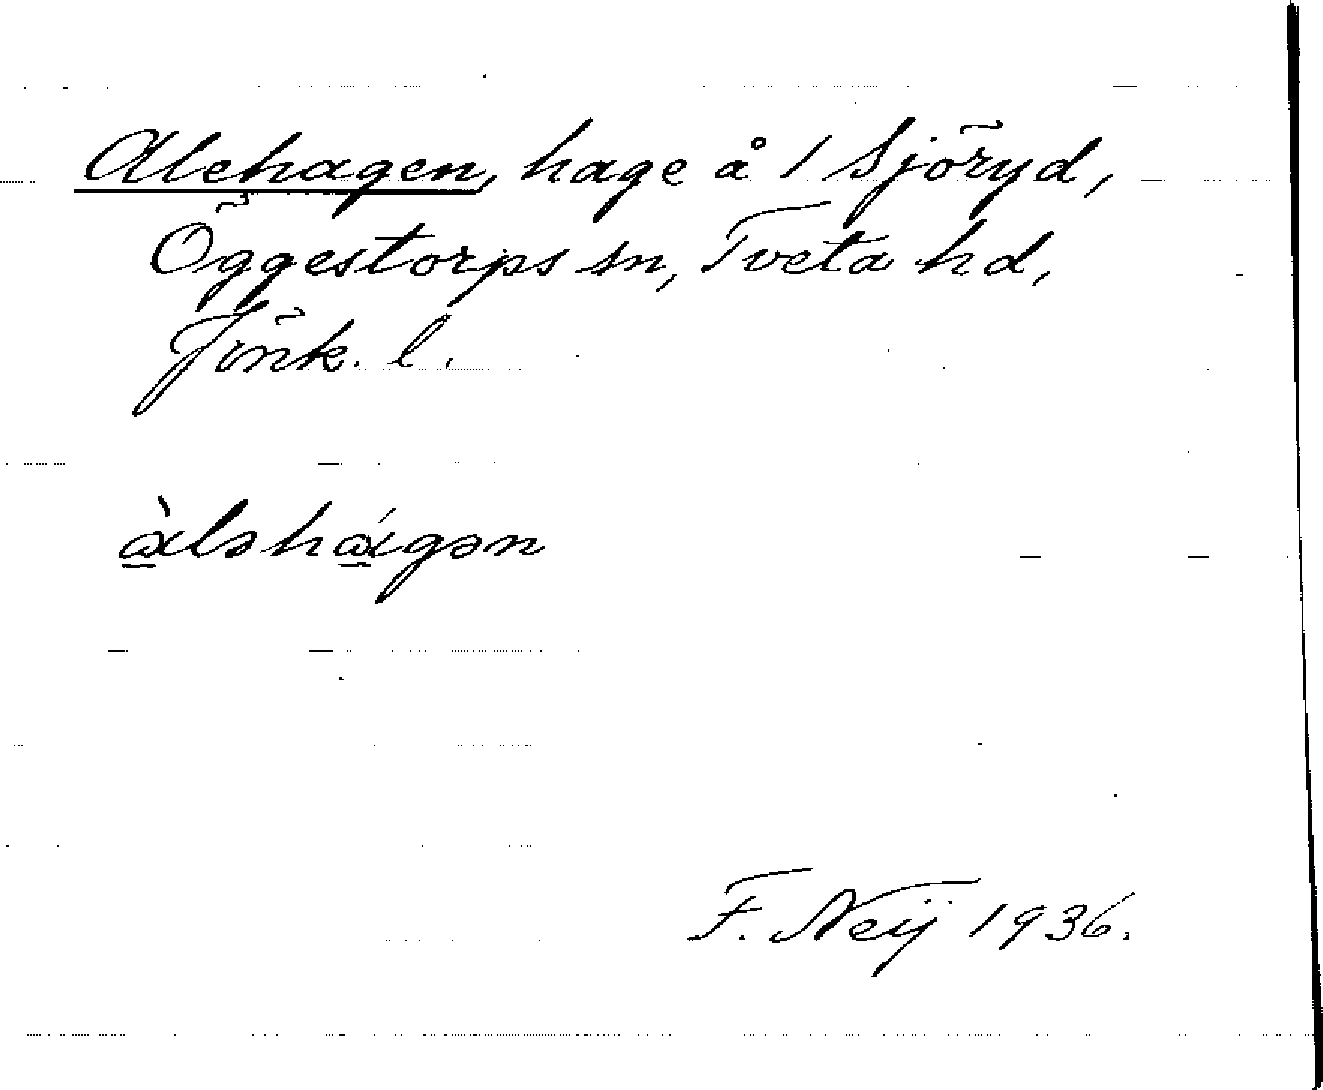 Alehagen, hage å 1 Sjöryd,
Öggestorps sn, Tveta hd,
Jönk. l.
àləhágən
F. Neij 1936.